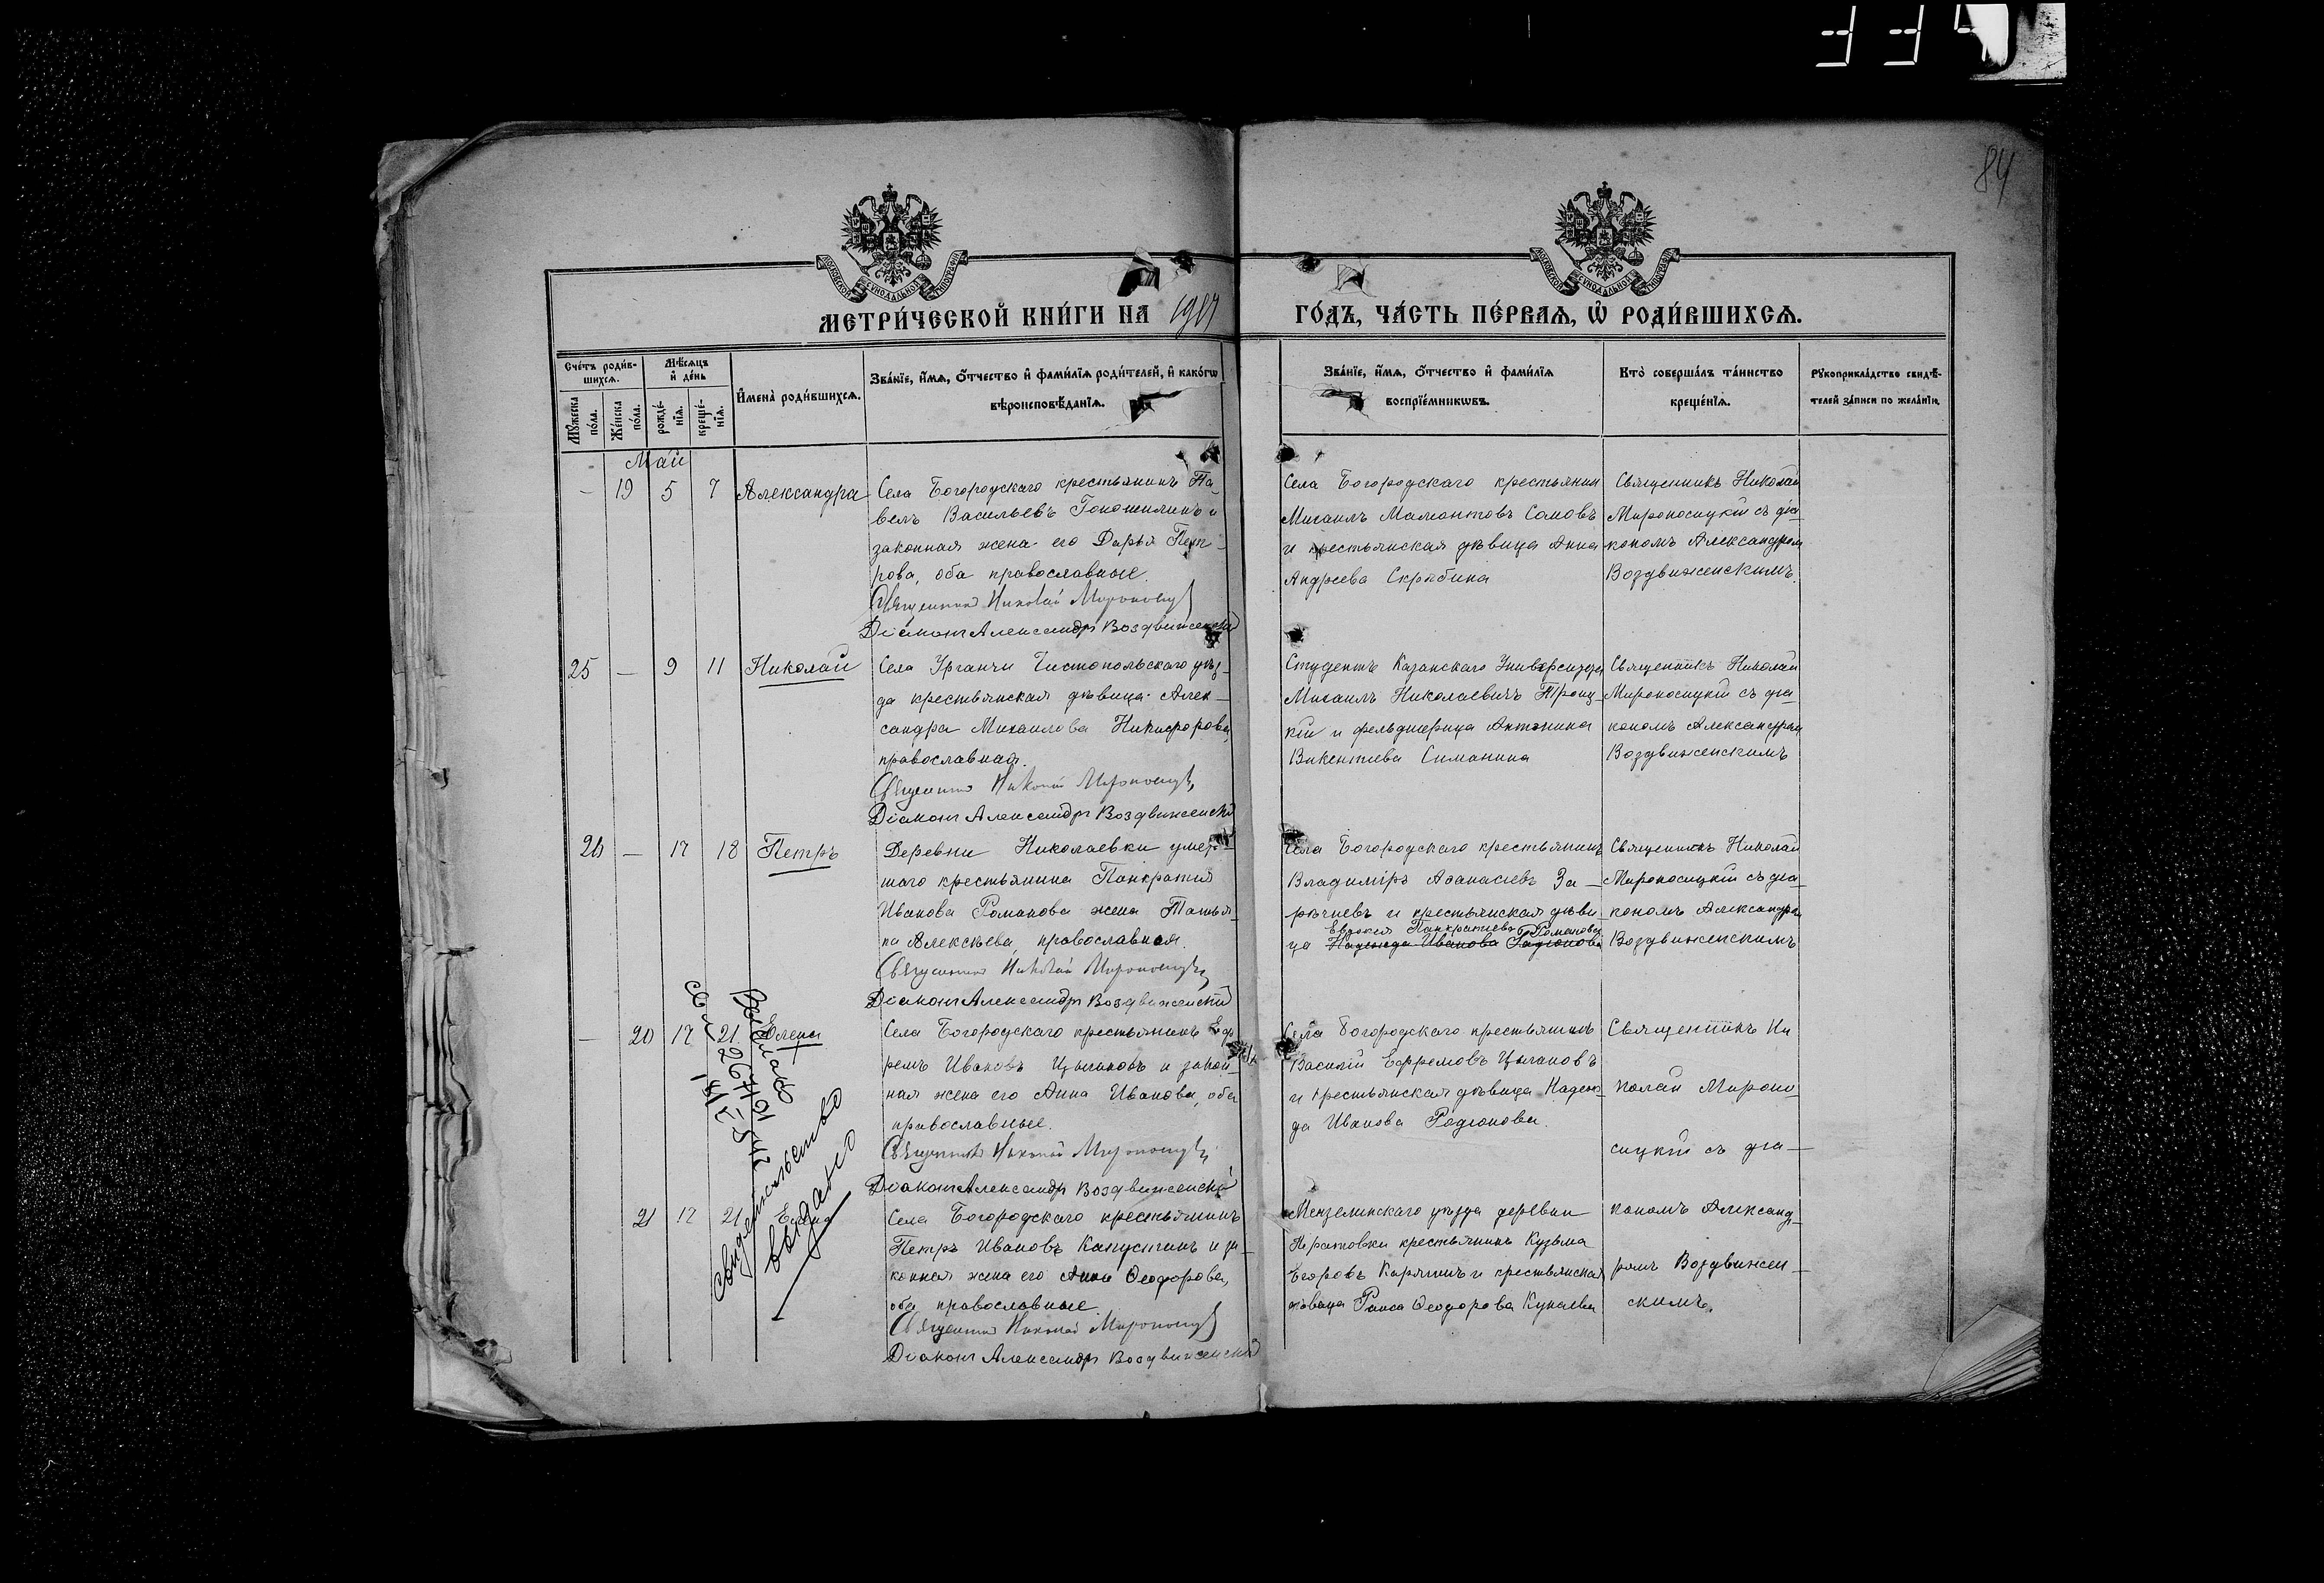 334
84
МОСКОВСКОЙ СУНОДАЛЬНОЙ ТИПОГРАФІИ
МОСКОВСКОЙ СУНОДАЛЬНОЙ ТИПОГРАФІИ
МЕТРИ́ЧЕСКОЙ КНИ́ГИ НА 1917
ГО́ДЪ, ЧА́СТЬ ПЕ́РВАЯ, Ѡ РОДИ́ВШИХСЯ.
Сче́тъ роди́в-
шихся.
Мѣ́сяцъ
и де́нь
Му́жеска
по́ла.
Же́нска
по́ла.
рожде́-
нія.
креще́-
нія.
Имена̀ роди́вшихся.
Зва́ніе, и́мя, о́тчество и фами́лія роди́телей, и како́гѡ
вѣроисповѣ́данія.
Зва́ніе, и́мя, о́тчество и фами́лія
воспріе́мникѡвъ.
Кто̀ соверша́лъ та́инство
креще́нія.
Рукоприкла́дство свидѣ́-
телей за́писи по жела́нію.
Май
— 19 5 7 Александра
Села Богородскаго крестьянинъ Па-
велъ Васильевъ и
законная жена его Дарья Пет-
рова, оба православные.
Священникъ Николай Мироносицкій
Діаконъ Александръ Воздвиженскій
Села Богородскаго крестьянин
Михаилъ Мамонтовъ Сомовъ
и крестьянская дѣвица Анна
Андреева Скрябина
Священникъ Николай
Мироносицкій съ діа-
кономъ Александром
Воздвиженскимъ.
25 — 9 11 Николай
Села Урганчи Чистопольскаго уѣз-
да крестьянская дѣвица Алек-
сандра Михаилова Никифорова,
православная.
Священникъ Николай Мироносицкій
Діаконъ Александръ Воздвиженскій
Студентъ Казанскаго Университета
Михаилъ Николаевичъ Троиц-
кій и фельдшерица Антонина
Викентиева Симанина
Священникъ Николай
Мироносицкій съ діа-
кономъ Александром
Воздвиженскимъ
26 — 17 18 Петръ
Деревни Николаевки умер-
шаго крестьянина Панкратія
Иванова Романова жена Татья-
на Алексѣева, православная.
Священникъ Николай Мироносицкій
Діаконъ Александръ Воздвиженскій
Села Богородскаго крестьянинъ
Владиміръ Аѳанасіевъ За-
рѣчневъ и крестьянская дѣви-
Евдокія Панкратіева Романова
ца Надежда Иванова Радіонова
Священникъ Николай
Мироносицкій съ діа-
кономъ Александром
Воздвиженскимъ
— 20 17 21 Елена
Села Богородскаго крестьянинъ Еф-
ремъ Ивановъ Цыгановъ и закон-
ная жена его Анна Иванова, оба
православные.
Священникъ Николай Мироносицкій
Діаконъ Александръ Воздвиженскій
Села Богородскаго крестьянинъ
Василій Ефремовъ Цыгановъ
и крестьянская дѣвица Надеж-
да Иванова Родіонова.
Священникъ Ни
колай Мироно-
сицкій съ діа-
21 17 21 Елена
свидетельство
выдано
Села Богородскаго крестьянинъ
Петръ Ивановъ Капустинъ и за-
конная жена его Анна Ѳеодорова,
оба православные.
Священникъ Николай Мироносицкій
Діаконъ Александръ Воздвиженскій
Мензелинскаго уѣзда деревни
крестьянинъ Кузьма
Егоровъ и крестьянская
дѣвица Раиса Ѳеодорова
кономъ Александ-
ромъ Воздвижен-
скимъ.